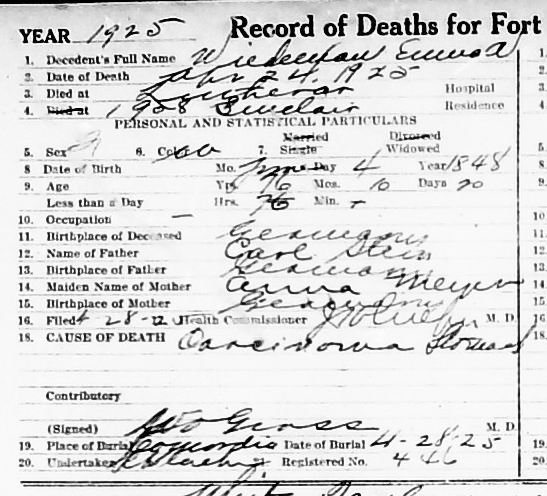 YEAR 1925 Record of Deaths for Fort
1. Decedent's Full Name Wiedeman Emma
2. Date of Death Apr 24, 1925
3. Died at Lutheran Hospital
4. Died at 1908 Sinclair Residence
PERSONAL AND STATISTICAL PARTICULARS
Married Divorced
5. Sex 6. Color 7. Single Widowed
8 Date of Birth Mo. June Day 4 Year 1848
9. Age Yrs. 76 Mos. 10 Days 20
Less than a Day Hrs. Min. -
10. Occupation —
11. Birthplace of Deceased Germany
12. Name of Father Carl Stein
13. Birthplace of Father Germany
14. Maiden Name of Mother Anna Meyer
15. Birthplace of Mother Germany
16. Filed 4-28-25 Health Commissioner M. D.
18. CAUSE OF DEATH Carcinoma Stomach
Contributory
(Signed) Gross M. D.
19. Place of Burial Concordia Date of Burial 4-28-25
20. Undertaker 21. Registered No. 446